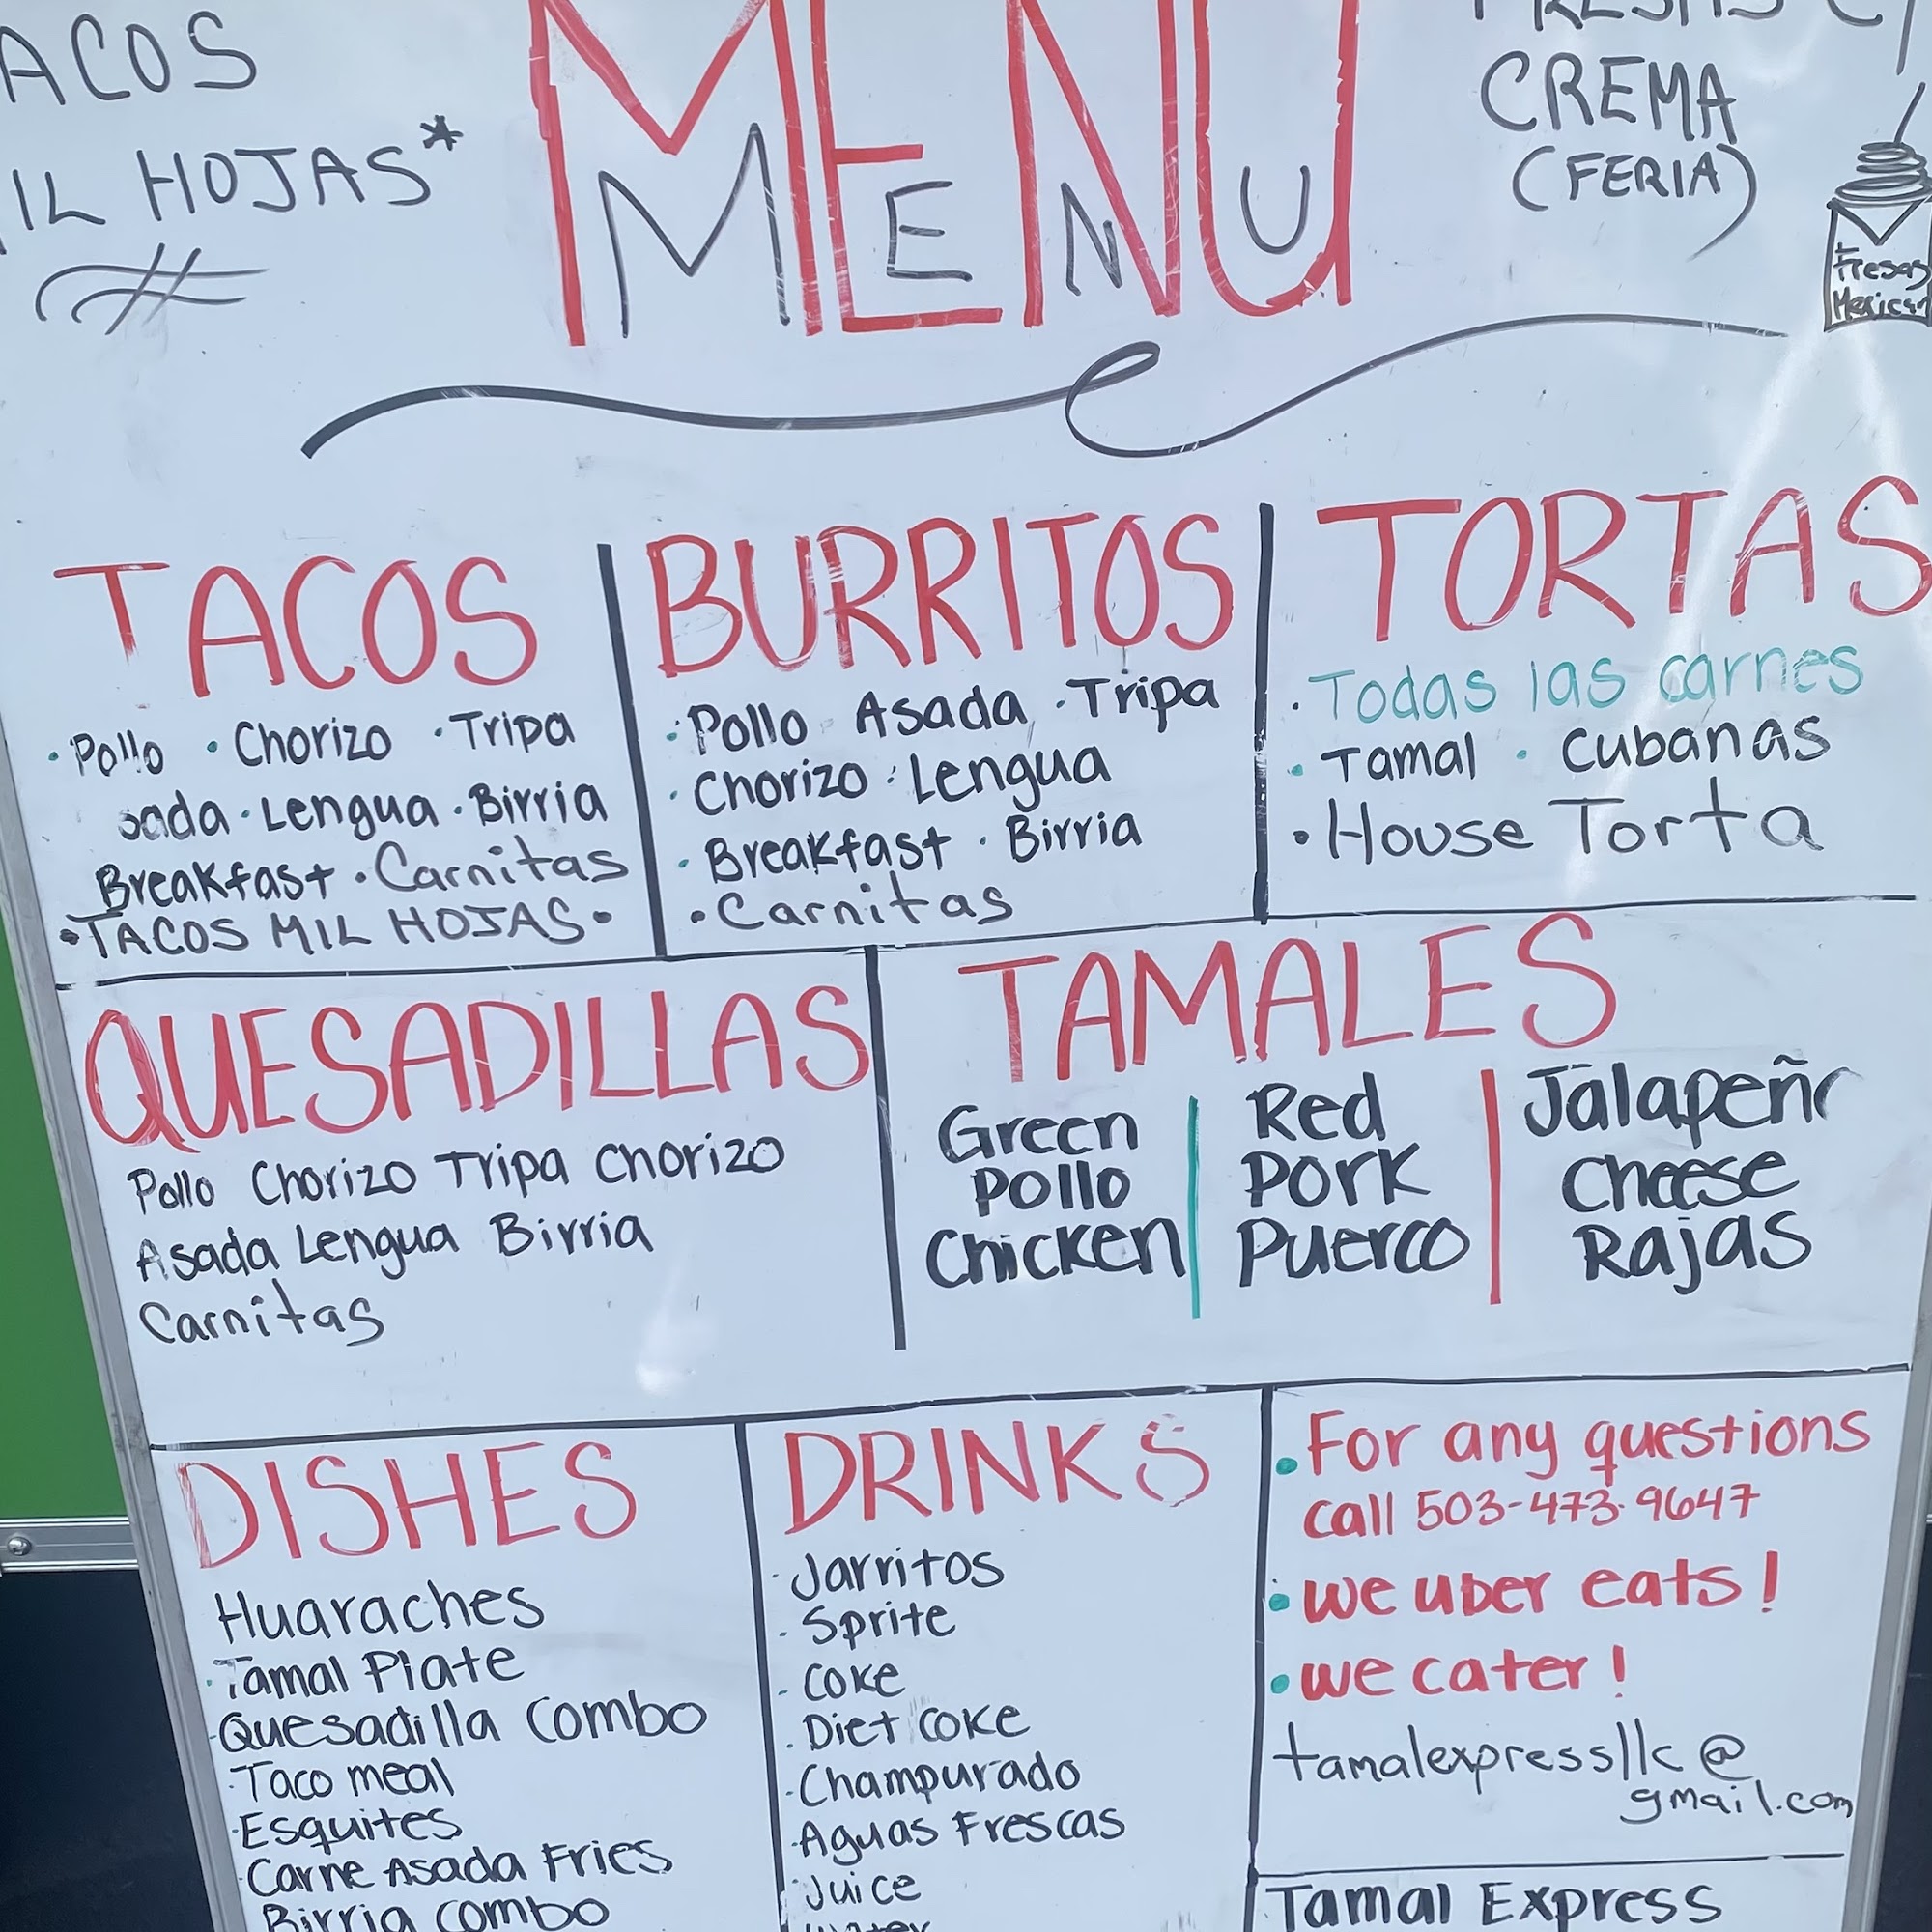 ACOS
IL HOJAS*
MENU
MENU
CREMA
(FERIA)
Fresas
TACOS
· Pollo · Chorizo · Tripa
sada · Lengua · Birria
Breakfast · Carnitas
• TACOS MIL HOJAS •
BURRITOS
· Pollo Asada · Tripa
· Chorizo · Lengua
· Breakfast · Birria
• Carnitas
TORTAS
· Todas las carnes
· Tamal · Cubanas
• House Torta
QUESADILLAS
Pollo Chorizo Tripa Chorizo
Asada Lengua Birria
Carnitas
TAMALES
Green
Pollo
Chicken
Red
Pork
Puerco
Jalapeño
Cheese
Rajas
DISHES
Huaraches
· Tamal Plate
· Quesadilla Combo
· Taco meal
· Esquites
· Carne Asada Fries
Birria Combo
DRINKS
· Jarritos
· Sprite
- Coke
· Diet Coke
· Champurado
· Aguas Frescas
· Juice
• For any questions
call 503-473-9647
• we uber eats!
• we cater!
tamalexpressllc@
gmail.com
Tamal Express